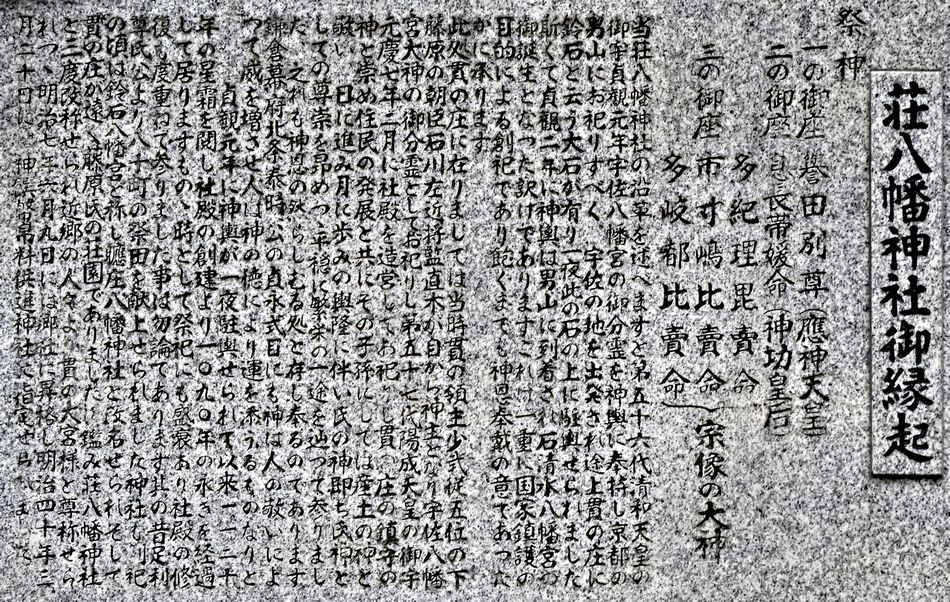 荘八幡神社御縁起
祭神
一の御座 譽田別尊(應神天皇)
二の御座 息長帯媛命(神功皇后)
三の御座 多紀理毘賣命
市寸嶋比賣命
多岐都比賣命
宗像の大神
当荘八幡神社の沿革を述べますと第五十六代清和天皇の
御宇貞観元年宇佐八幡宮の御分霊を神輿に奉持し京都の
男山にお祀りすべく、宇佐の地を出発され途上貫の庄に
鈴石と云う大石が有り一夜此の石の上に駐輿せられました
斯くて貞観二年に神輿は男山に到着され石清水八幡宮の
御誕生となった訳けでありますこれは一重に国家鎮護の
目的による創祀であり飽くまでも神恩奉戴の意であった
かに承ります
此処貫の庄に在りましては当時貫の領主少弐従五位の下
藤原の朝臣石川左近将監直木が自から神主となり宇佐八幡
宮大神の御分霊としてお祀りし第五十七代陽成天皇の御宇
元慶七年二月に社殿を造営してお祀し貫一庄の鎮守の
神と崇め住民の発展と共にその子孫にしては産土の神と
敬い、日に進み月に歩みの興隆に伴い氏の神即ち氏神と
しての尊宗を昴めつつ平穏に繁栄の一途を辿つて参りまし
た、之れも神恩の然らしむる処と存じ奉るのであります
鎌倉幕府北条泰時公の貞永式目にも神は人の敬いによ
つて威を増させ人は神の徳により運を添うるものなりと
貞観元年に神輿が一夜駐輿せられて以来一一二十
年の星霜を閲し社殿の創建より一〇九〇年の永きを経過
して居りますもの、時として祭祀にも盛衰あり社殿の修
復も度重ねて参りました事は勿論であります其の昔足利
尊氏公より八十町の祭田を献上せられました神社も別記
の頃は鈴石八幡宮と称し贍庄八幡神社と改名せられそして
貫の庄が遠く藤原氏の荘園でありましたに鑑み荘八幡神社
と三度改称せられ近郷の人々より貫の大宮様と尊称せら
れつ、明治七年六月九日には郷社に昇格し明治四十年二
月二十日に、神饌幣帛料供進神社に指定せられまして